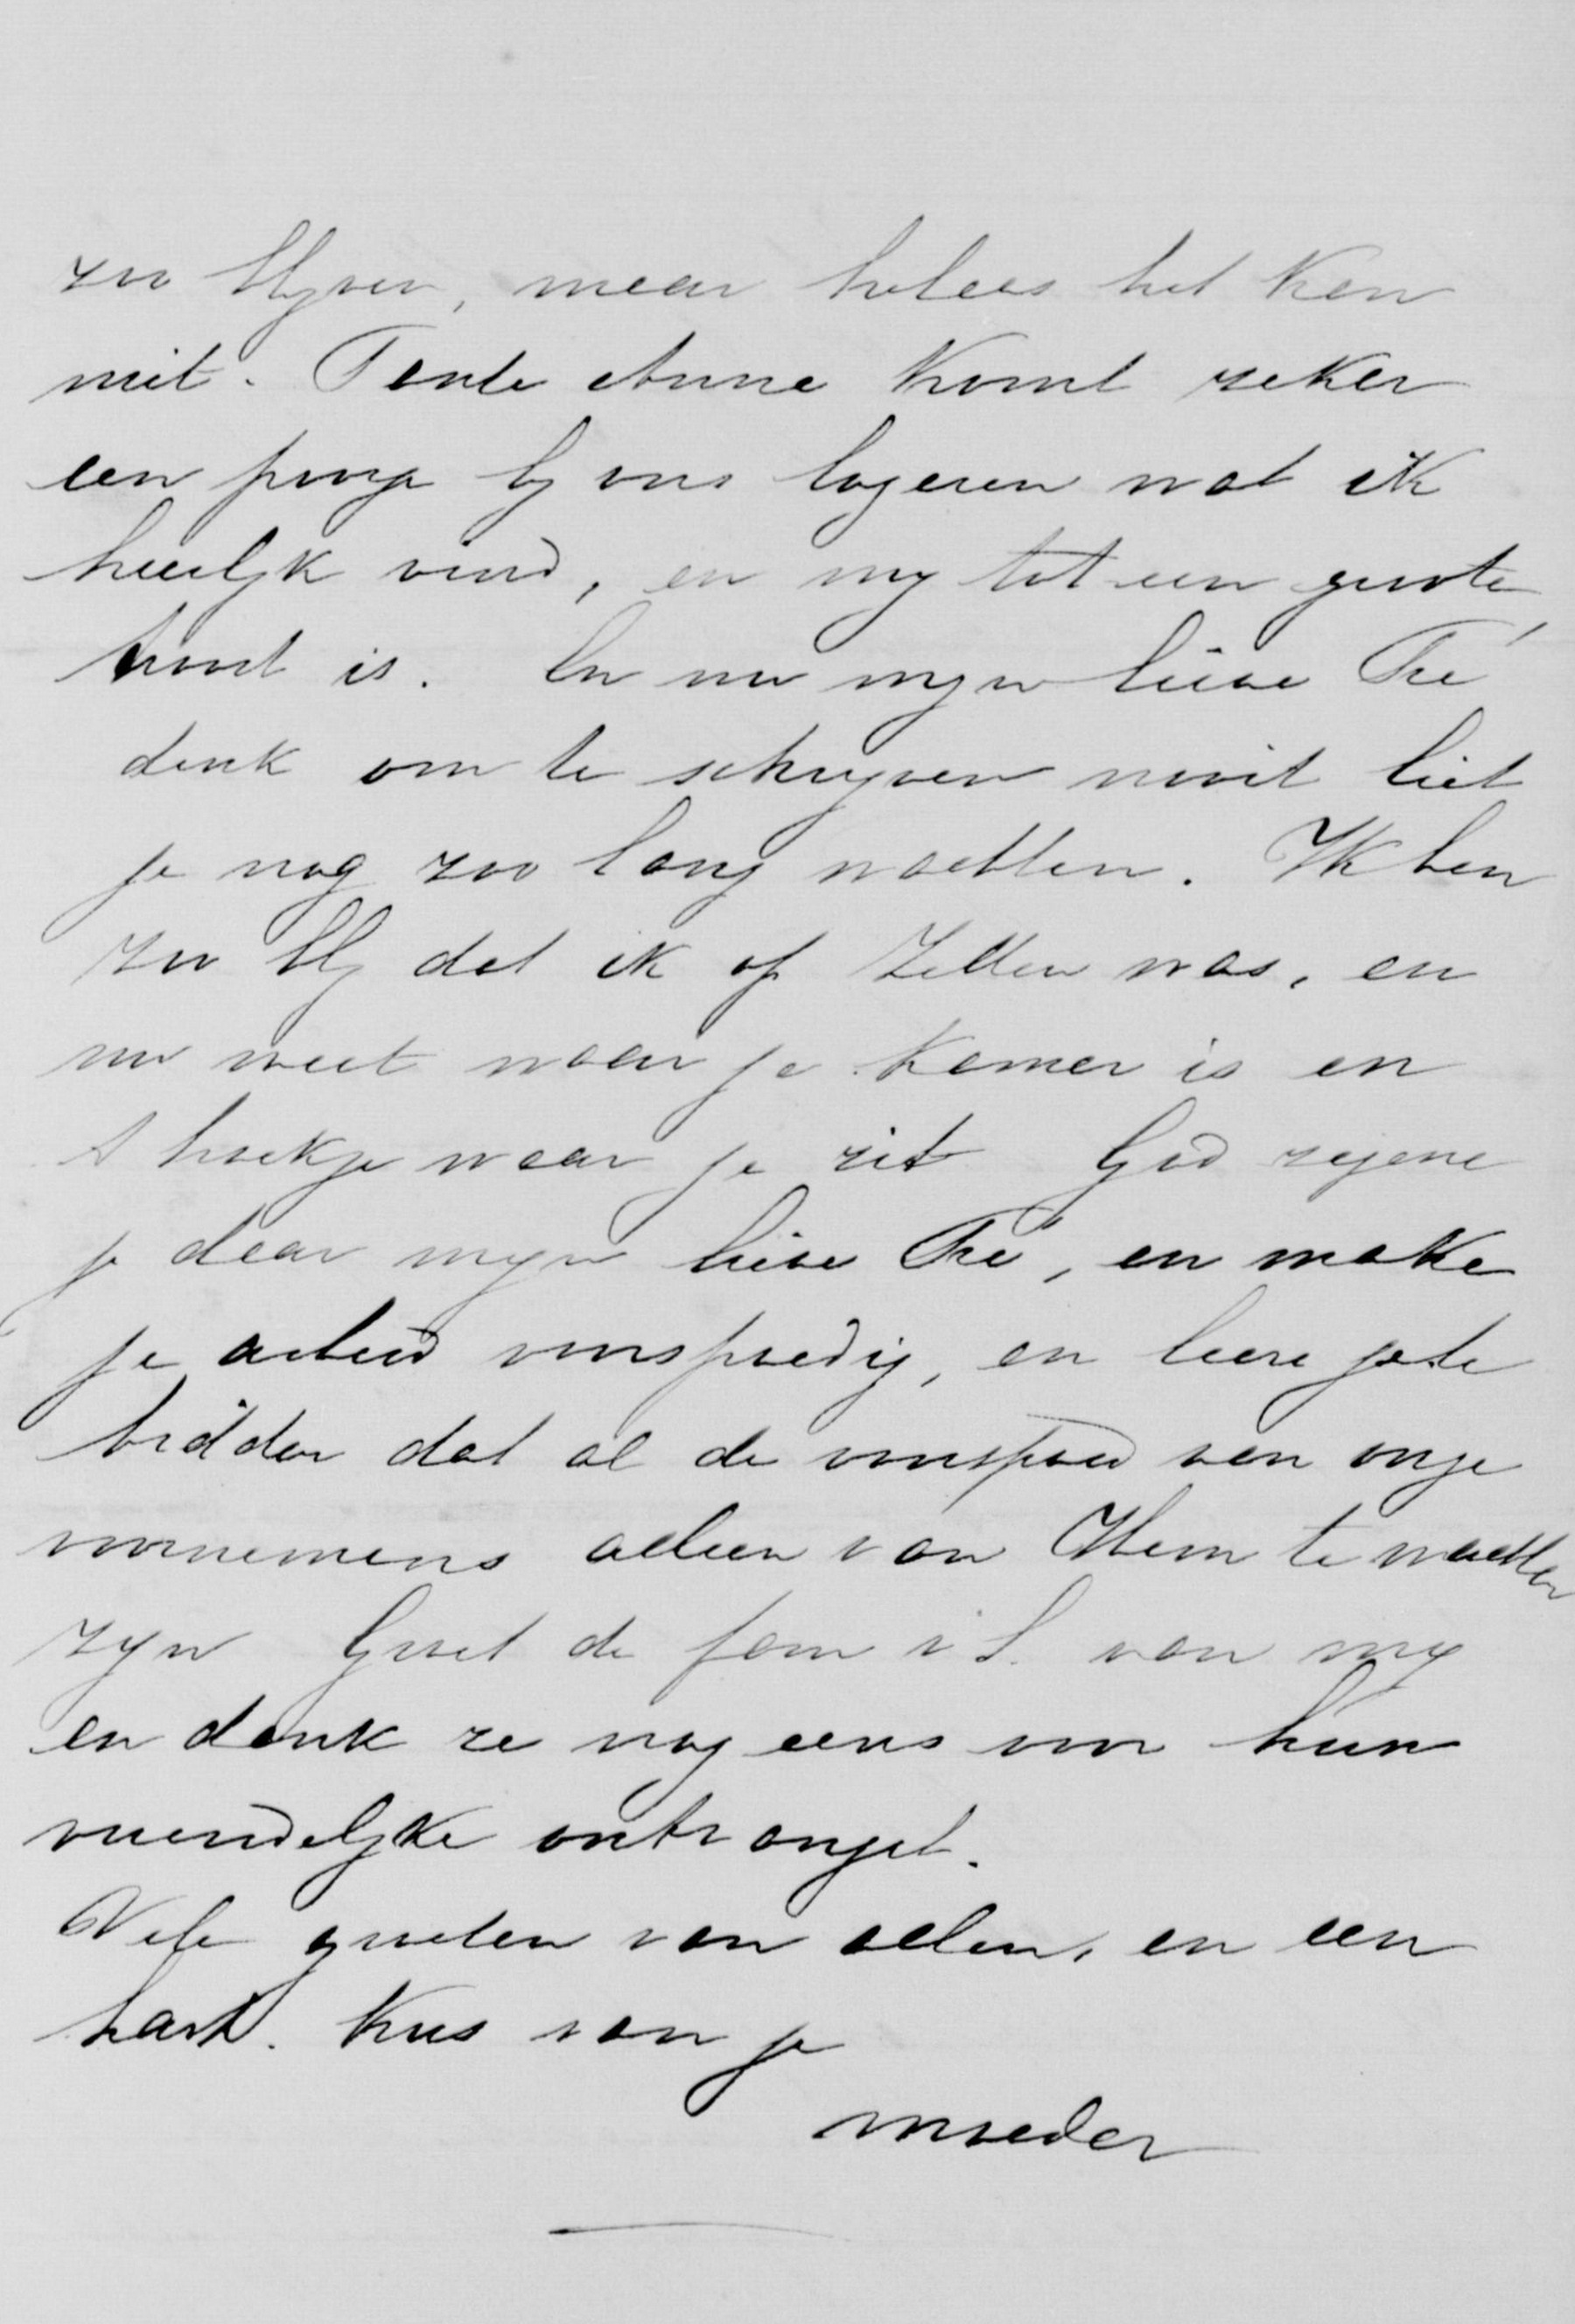 zoo blyven, maar helaas het kan
niet. Tante Anna komt zeker
een poosje by ons logeren wat ik
heerlyk vind, en my tot een groote
troost is. En nu myn lieve Tré
denk om te schryven nooit liet
je nog zoo lang wachten. Ik ben
zoo bly dat ik op Zetten was, en
nu weet waar je kamer is en
't hoekje waar je zit God zegene
je daar myn lieve Tré, en make
je arbeid voorspoedig, en leere je te
bidden dat al de voorspoed van onze
voornemens alleen van Hem te wachten
zyn Groet de fam v S. van my
en dank ze nog eens voor hun
vriendelyke ontvangst.
Vele groeten van allen, en een
hart. kus van je
moeder